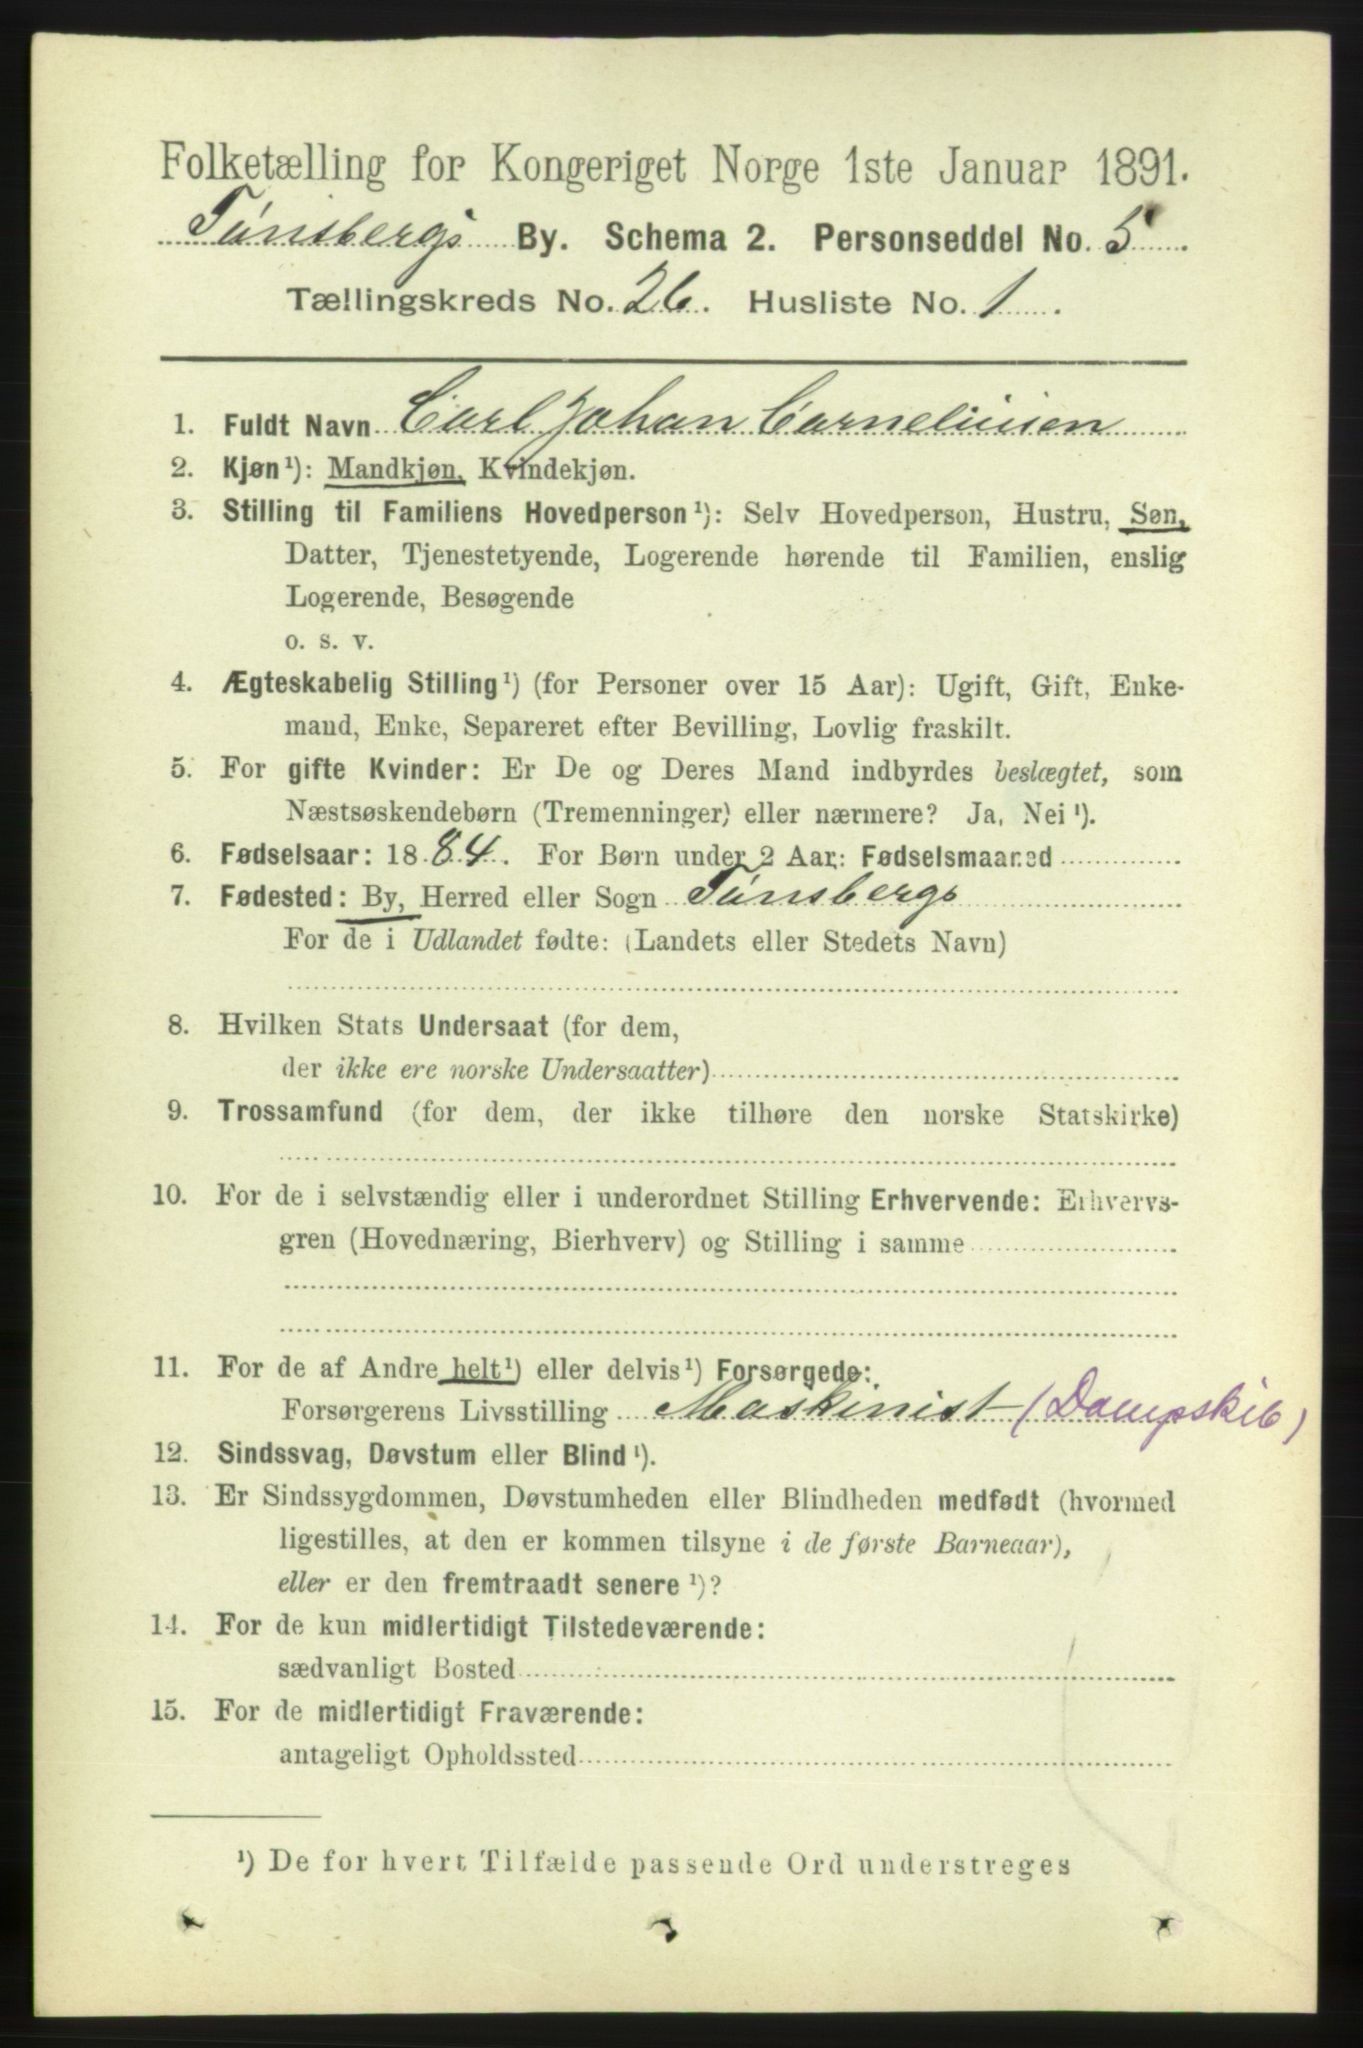 Folketælling for Kongeriget Norge 1ste Januar 1891.
Tønsbergs By. Schema 2. Personseddel No. 5
Tællingskreds No. 26. Husliste No. 1.
1. Fuldt Navn Carl Johan Corneliusen
2. Kjøn ¹): Mandkjøn, Kvindekjøn.
3. Stilling til Familiens Hovedperson ¹): Selv Hovedperson, Hustru, Søn,
Datter, Tjenestetyende, Logerende hørende til Familien, enslig
Logerende, Besøgende
o. s. v.
4. Ægteskabelig Stilling ¹) (for Personer over 15 Aar): Ugift, Gift, Enke-
mand, Enke, Separeret efter Bevilling, Lovlig fraskilt.
5. For gifte Kvinder: Er De og Deres Mand indbyrdes beslægtet, som
Næstsøskendebørn (Tremenninger) eller nærmere? Ja, Nei ¹).
6. Fødselsaar: 1884. For Børn under 2 Aar: Fødselsmaaned
7. Fødested: By, Herred eller Sogn Tønsbergs
For de i Udlandet fødte: (Landets eller Stedets Navn)
8. Hvilken Stats Undersaat (for dem,
der ikke ere norske Undersaatter)
9. Trossamfund (for dem, der ikke tilhøre den norske Statskirke)
10. For de i selvstændig eller i underordnet Stilling Erhvervende: Erhvervs-
gren (Hovednæring, Bierhverv) og Stilling i samme
11. For de af Andre helt ¹) eller delvis ¹) Forsørgede:
Forsørgerens Livsstilling Maskinist (Dampskib)
12. Sindssvag, Døvstum eller Blind ¹).
13. Er Sindssygdommen, Døvstumheden eller Blindheden medfødt (hvormed
ligestilles, at den er kommen tilsyne i de første Barneaar),
eller er den fremtraadt senere ¹)?
14. For de kun midlertidigt Tilstedeværende:
sædvanligt Bosted
15. For de midlertidigt Fraværende:
antageligt Opholdssted
¹) De for hvert Tilfælde passende Ord understreges